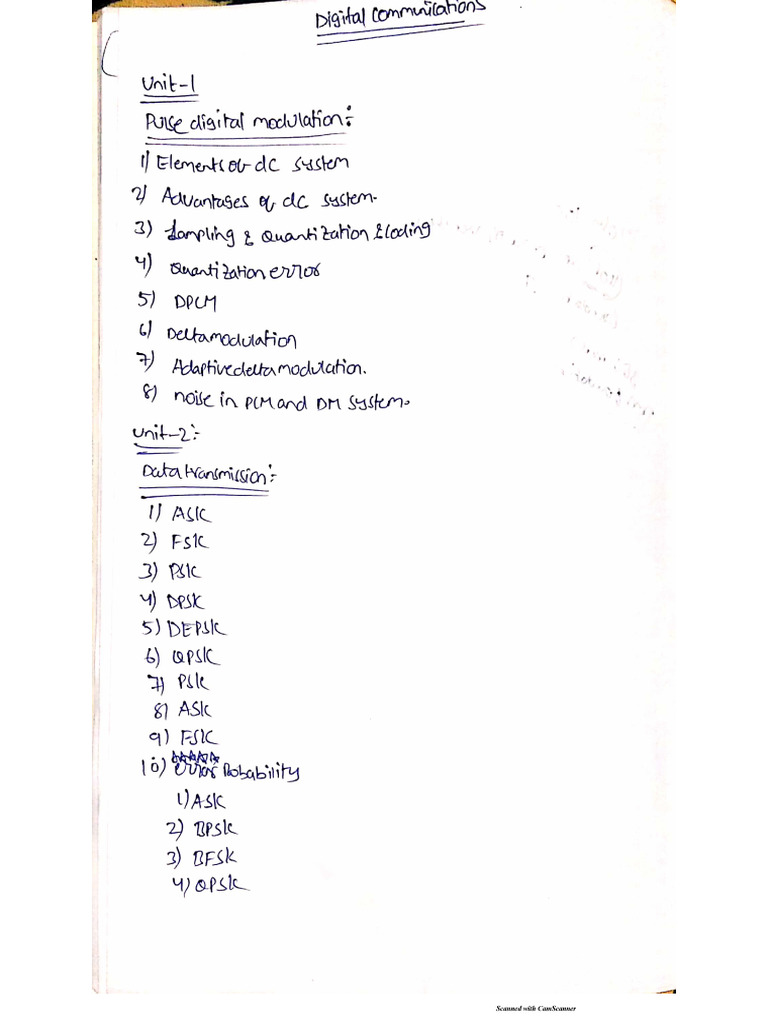 Digital Communications
Unit-1
Pulse digital modulation:
1) Elements of dc system
2) Advantages of dc system.
3) Sampling & Quantization & Coding
4) Quantization error
5) DPCM
6) Deltamodulation
7) Adaptivedeltamodulation.
8) noise in PCM and DM system.
Unit-2:-
Datatransmission:-
1) ASK
2) FSK
3) PSK
4) DPSK
5) DEPSK
6) QPSK
7) PSK
8) ASK
9) FSK
10) error Probability
1) ASK
2) BPSK
3) BFSK
4) QPSK
Scanned with CamScanner